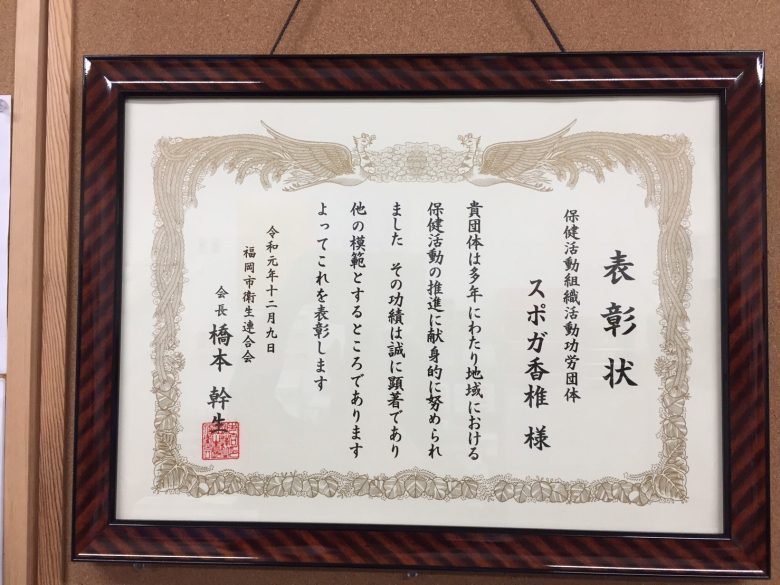 表彰状
保健活動組織活動功労団体
スポガ香椎 様
貴団体は多年にわたり地域における
保健活動の推進に献身的に努められ
ました その功績は誠に顕著であり
他の模範とするところであります
よってこれを表彰します
令和元年十二月九日
福岡市衛生連合会
会長 橋本 幹生